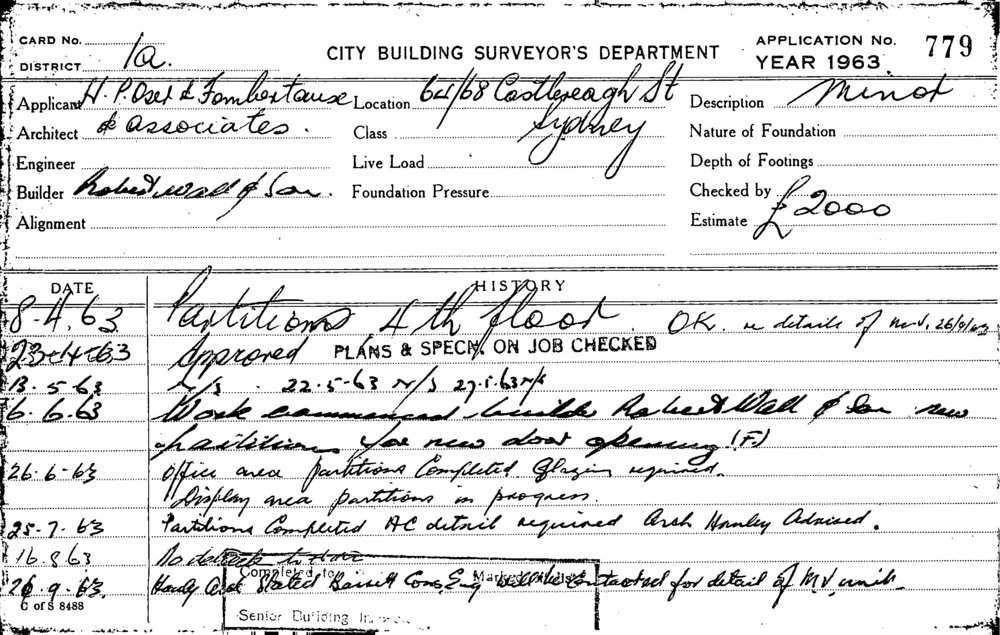 CARD No.
DISTRICT 1a.
CITY BUILDING SURVEYOR'S DEPARTMENT
APPLICATION No. 779
YEAR 1963
Applicant H. P. Oser & Fombertaux
Location 64/68 Castlereagh St
Description Minor
Architect & associates.
Class Sydney
Nature of Foundation
Engineer
Live Load
Depth of Footings
Builder Robert Wall & Son.
Foundation Pressure
Checked by
Alignment
Estimate £2000
DATE HISTORY
8-4.63 Partitions 4th floor. OK. details of M.V. 26/9/63
23-4-63 Approved PLANS & SPECN. ON JOB CHECKED
13.5-63 N/S. 22.5-63 N/S 27.5.63 N/S
6.6.63 Work commenced builder Robert Wall & Son new
partitions for new door opening (F)
26.6-63 Office area partitions Completed Glazing required.
Display area partitions in progress.
25-7.63 Partitions Completed AC detail required Arch Hanley Advised.
16.8.63 No
26.9.63. Arch Stated Bassett Cons. Eng to be contacted for detail of M.V. unit.
Completed to
Marked off list
Senior Building
C of S 8488